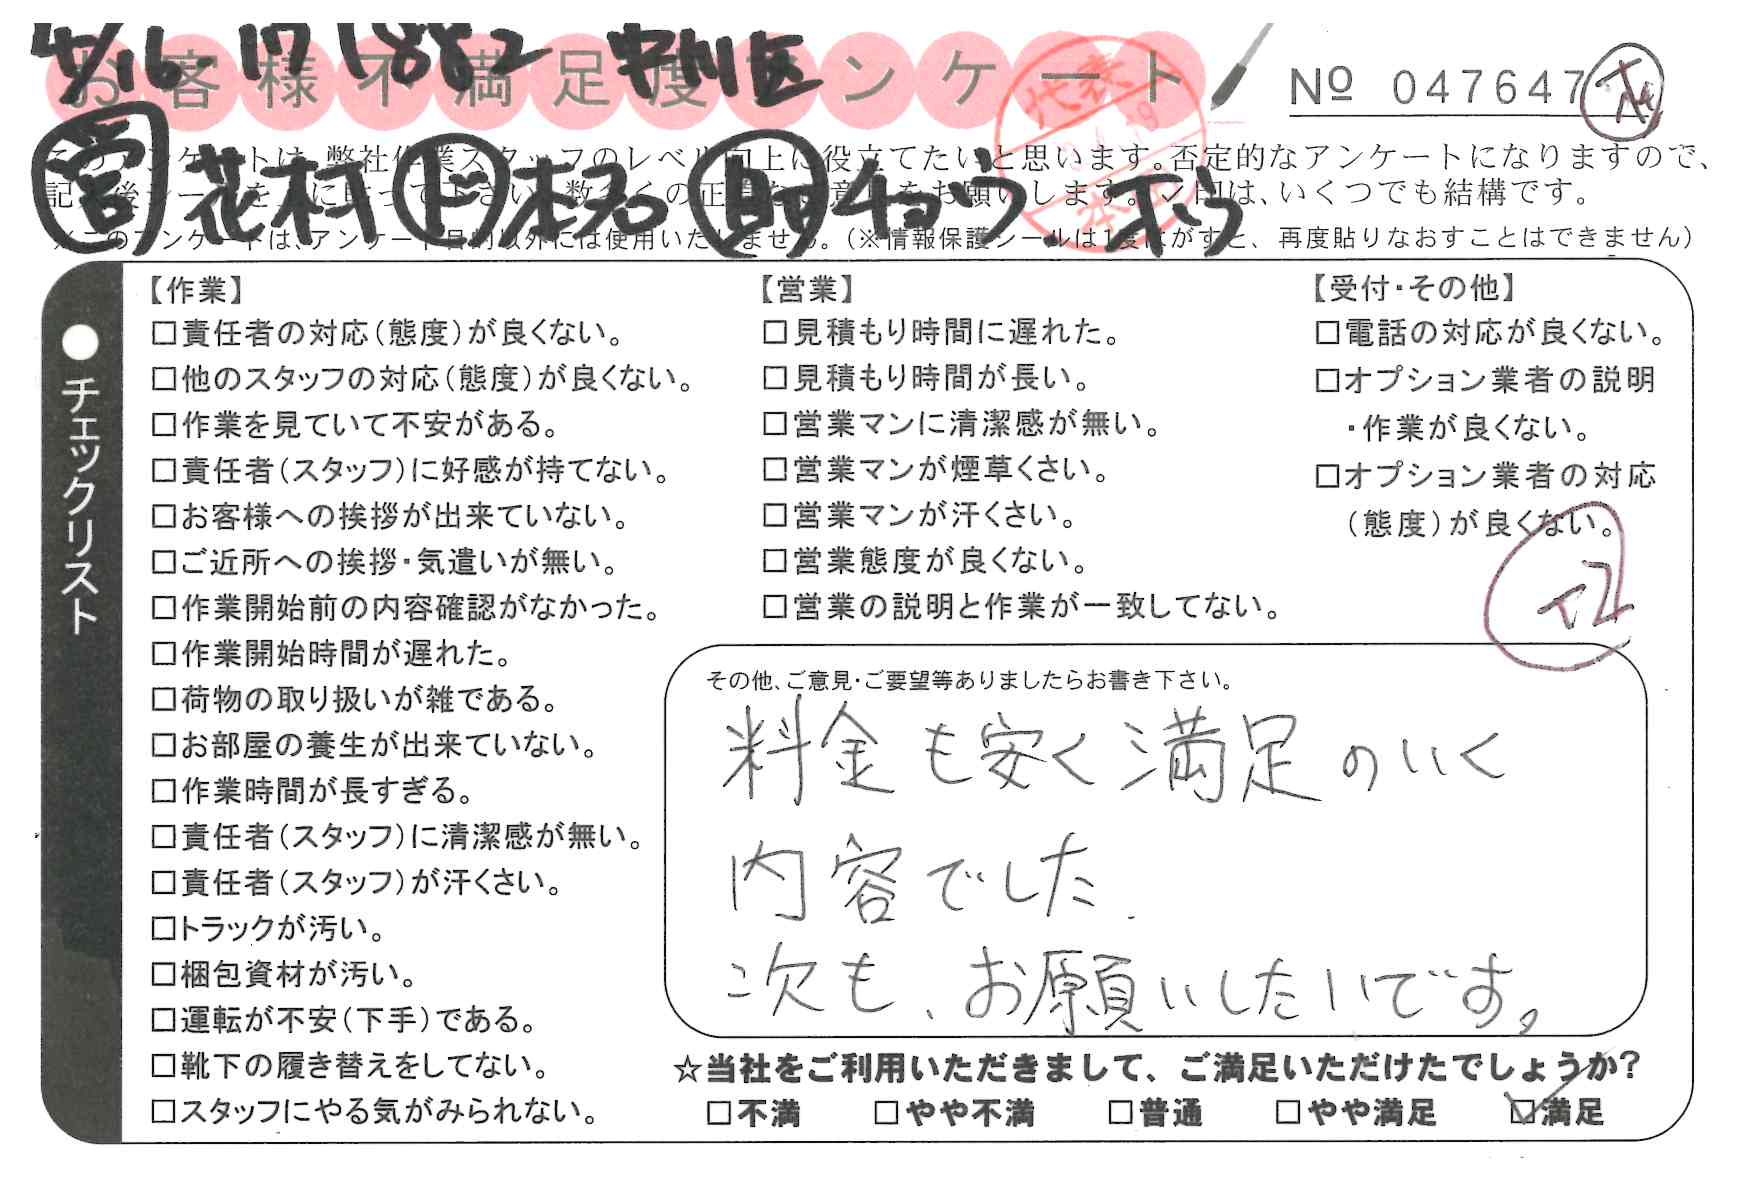 4/16 17 1882 中川区
お客様不満足度アンケート
№ 047647
このアンケートは、弊社作業スタッフのレベル向上に役立てたいと思います。否定的なアンケートになりますので、
いくつでも結構です。
営 花村 ド
※このアンケートは、アンケート目的以外には使用いたしません。(※情報保護シールは1度はがすと、再度貼りなおすことはできません)
●チェックリスト
【作業】
□責任者の対応(態度)が良くない。
□他のスタッフの対応(態度)が良くない。
□作業を見ていて不安がある。
□責任者(スタッフ)に好感が持てない。
□お客様への挨拶が出来ていない。
□ご近所への挨拶・気遣いが無い。
□作業開始前の内容確認がなかった。
□作業開始時間が遅れた。
□荷物の取り扱いが雑である。
□お部屋の養生が出来ていない。
□作業時間が長すぎる。
□責任者(スタッフ)に清潔感が無い。
□責任者(スタッフ)が汗くさい。
□トラックが汚い。
□梱包資材が汚い。
□運転が不安(下手)である。
□靴下の履き替えをしてない。
□スタッフにやる気がみられない。
【営業】
□見積もり時間に遅れた。
□見積もり時間が長い。
□営業マンに清潔感が無い。
□営業マンが煙草くさい。
□営業マンが汗くさい。
□営業態度が良くない。
□営業の説明と作業が一致してない。
【受付・その他】
□電話の対応が良くない。
□オプション業者の説明
・作業が良くない。
□オプション業者の対応
(態度)が良くない。
その他、ご意見・ご要望等ありましたらお書き下さい。
料金も安く満足のいく
内容でした.
次も、お願いしたいです。
☆当社をご利用いただきまして、ご満足いただけたでしょうか?
□不満 □やや不満 □普通 □やや満足 ☑満足